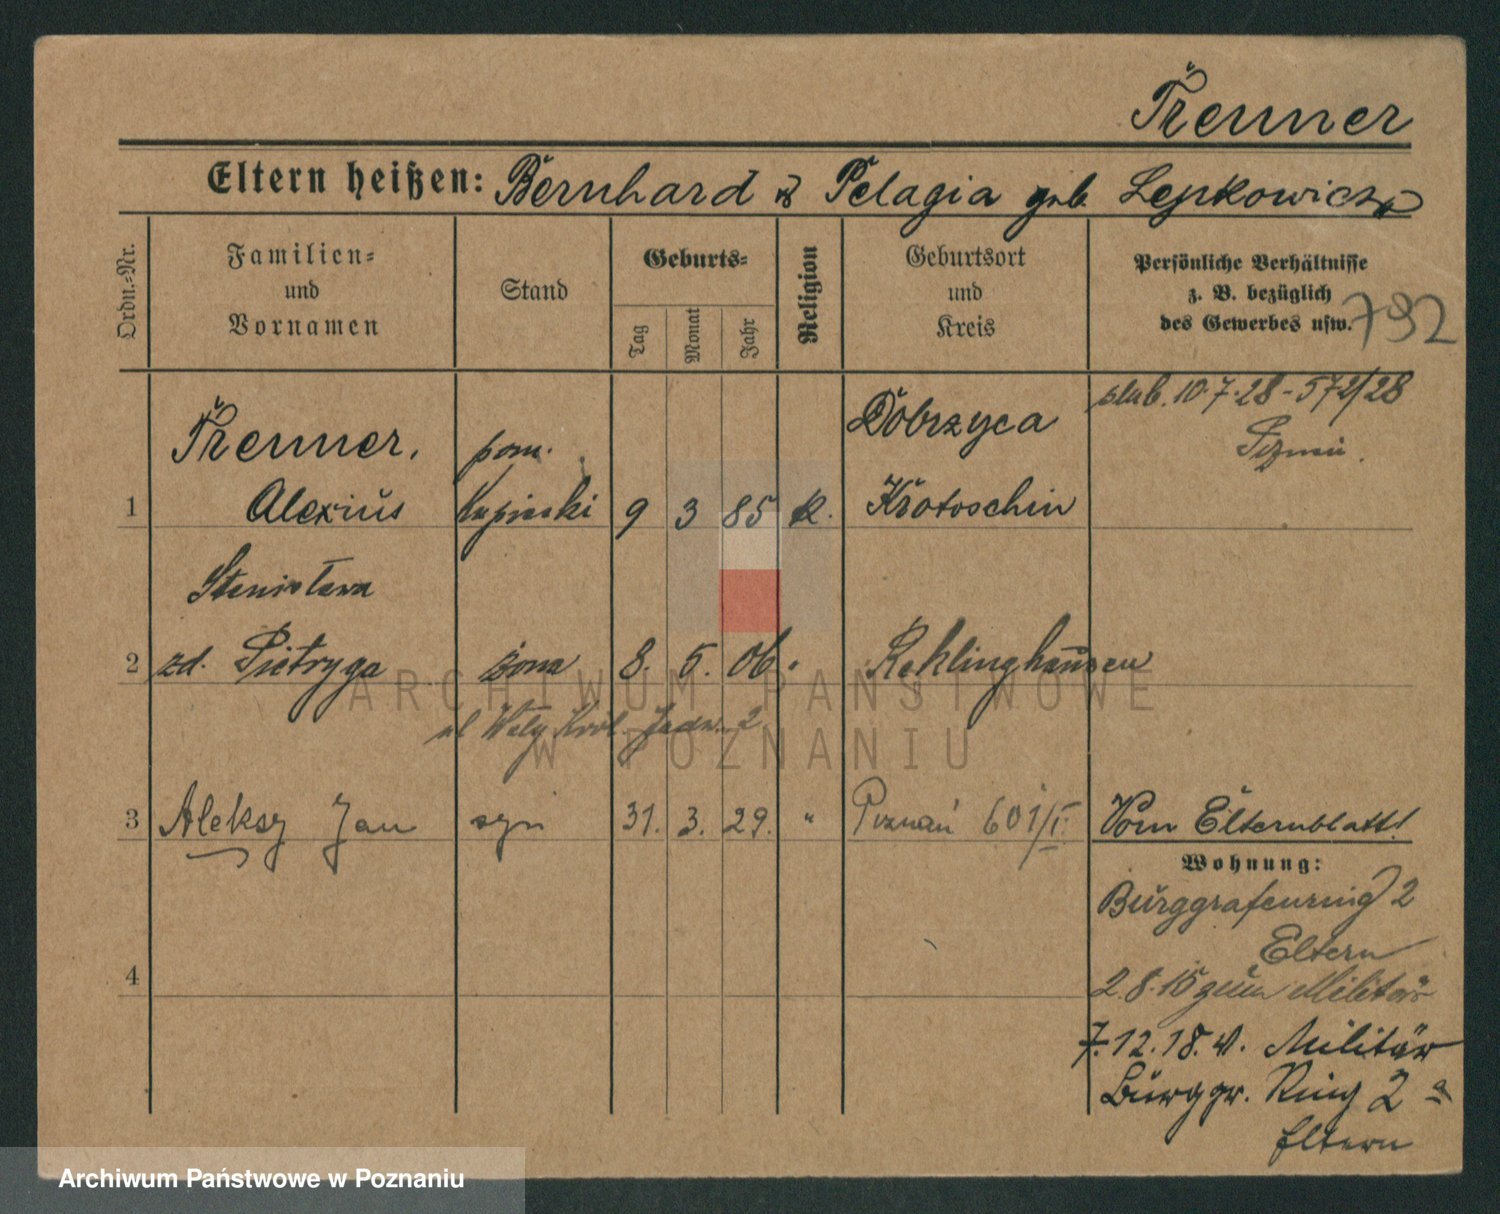 Trenner
Eltern heißen: Bernhard & Pelagia geb. Lepkowicz
Ordn.-Nr.
Familien-
und
Vornamen
Stand
Geburts-
Tag
Monat
Jahr
Religion
Geburtsort
und
Kreis
Persönliche Verhältnisse
z. B. bezüglich
des Gewerbes usw.
792
Trenner,
Alexius
pom.
kupiecki
9 3 85 K.
Dobrzyca
Krotoschin
ślub. 10.7.28 - 572/28
Poznań.
1
Stanisława
2 zd. Pietryga żona 8. 5. 06. Reklinghausen
ul Wały Król. Jadw. 2
3 Aleksy Jan syn 31. 3. 29. " Poznań 601/I. Vom Elternblatt!
Wohnung:
Burggrafenring 2
Eltern
4
2.8.15 zum Militär
7.12.18. v. Militär
Burggr. Ring 2 a
Eltern
ARCHIWUM PAŃSTWOWE
W POZNANIU
Archiwum Państwowe w Poznaniu